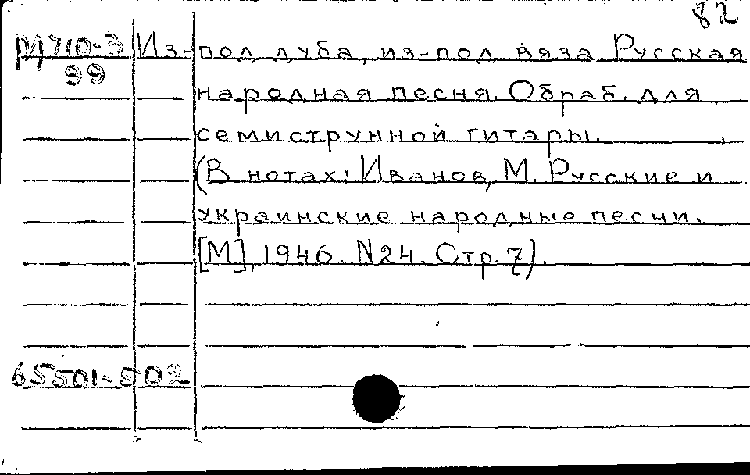 82
М710-3 Из-под дуба, из-под вяза. Русская
99 народная песня. Обраб. для
семиструнной гитары.
(В нотах: Иванов, М. Русские и
украинские народные песни.
[М], 1946. N24. Стр. 7)
65501-502